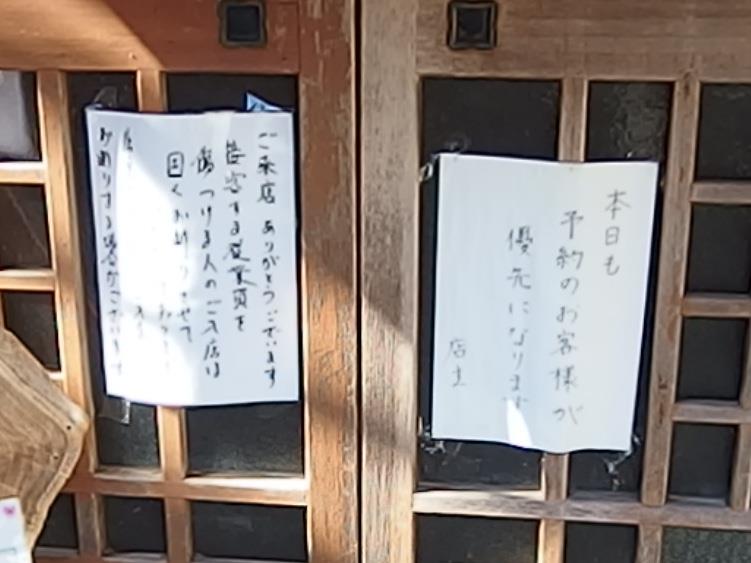 本日も
予約のお客様が
優先になります
店主
ご来店 ありがとうございます
接客する従業員を
傷つける人のご入店は
固くお断りさせて
お断りする場合がございます